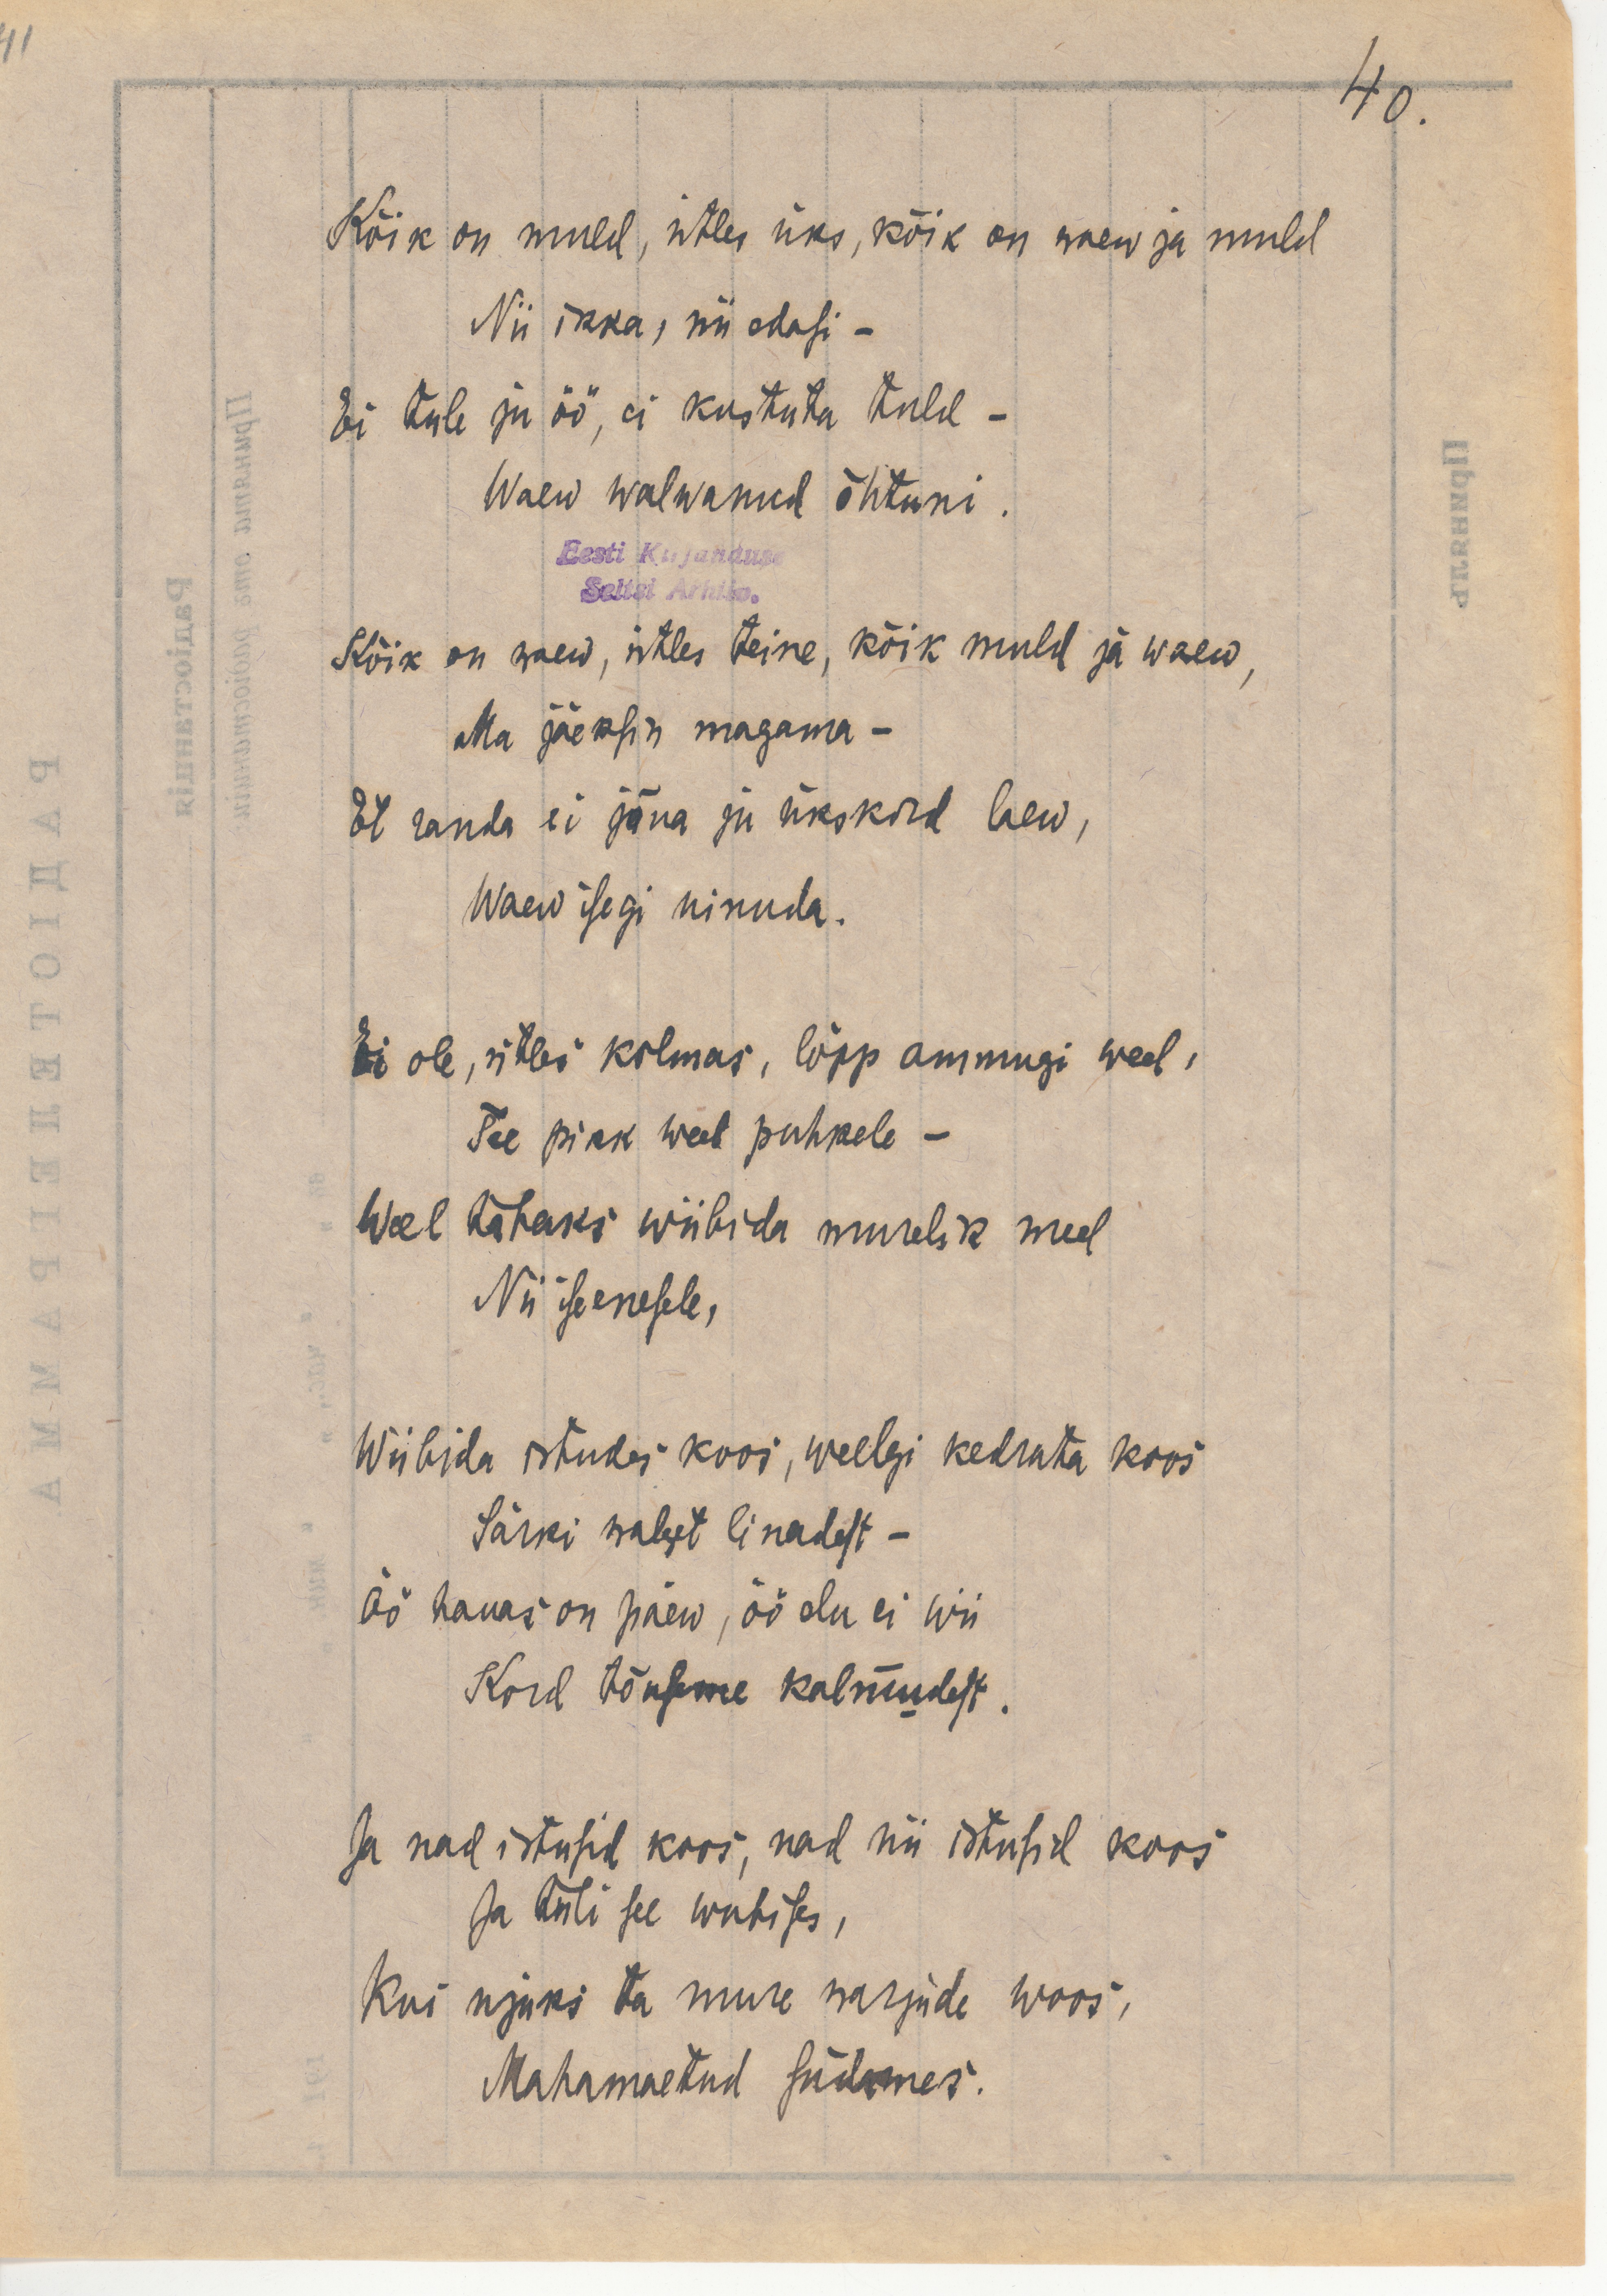 41
40.
Kõik on muld, ütles üks, kõik on waew ja muld
Nii ikka, nii edasi –
Ei tule ju öö, ei kustuta tuld –
Waew walwanud õhtuni.
Eesti Kirjanduse
Seltsi Arhiiv.
Kõik on waew, ütles teine, kõik muld ja waew,
Ma jäeksin magama –
Et randa ei jõua ju ükskord laew,
Waew isegi uinuda.
Ei ole, ütles kolmas, lõpp ammugi weel,
Tee pikk weel puhkele –
Weel tahaks wiibida murelik meel
Nii iseenesele,
Wiibida istudes koos, weelgi kedrata koos
Särki walget linadest –
Öö hauas on päew, öö elu ei wii
Kord tõuseme kalmudest.
Ja nad istusid koos, nad nii istusid koos
Ja tuli see wubises,
Kui ujuks ta mure warjude woos,
Mahamaetud südames.
Радіостанція
РАДІОТЕЛЕГРАММА
Принялъ